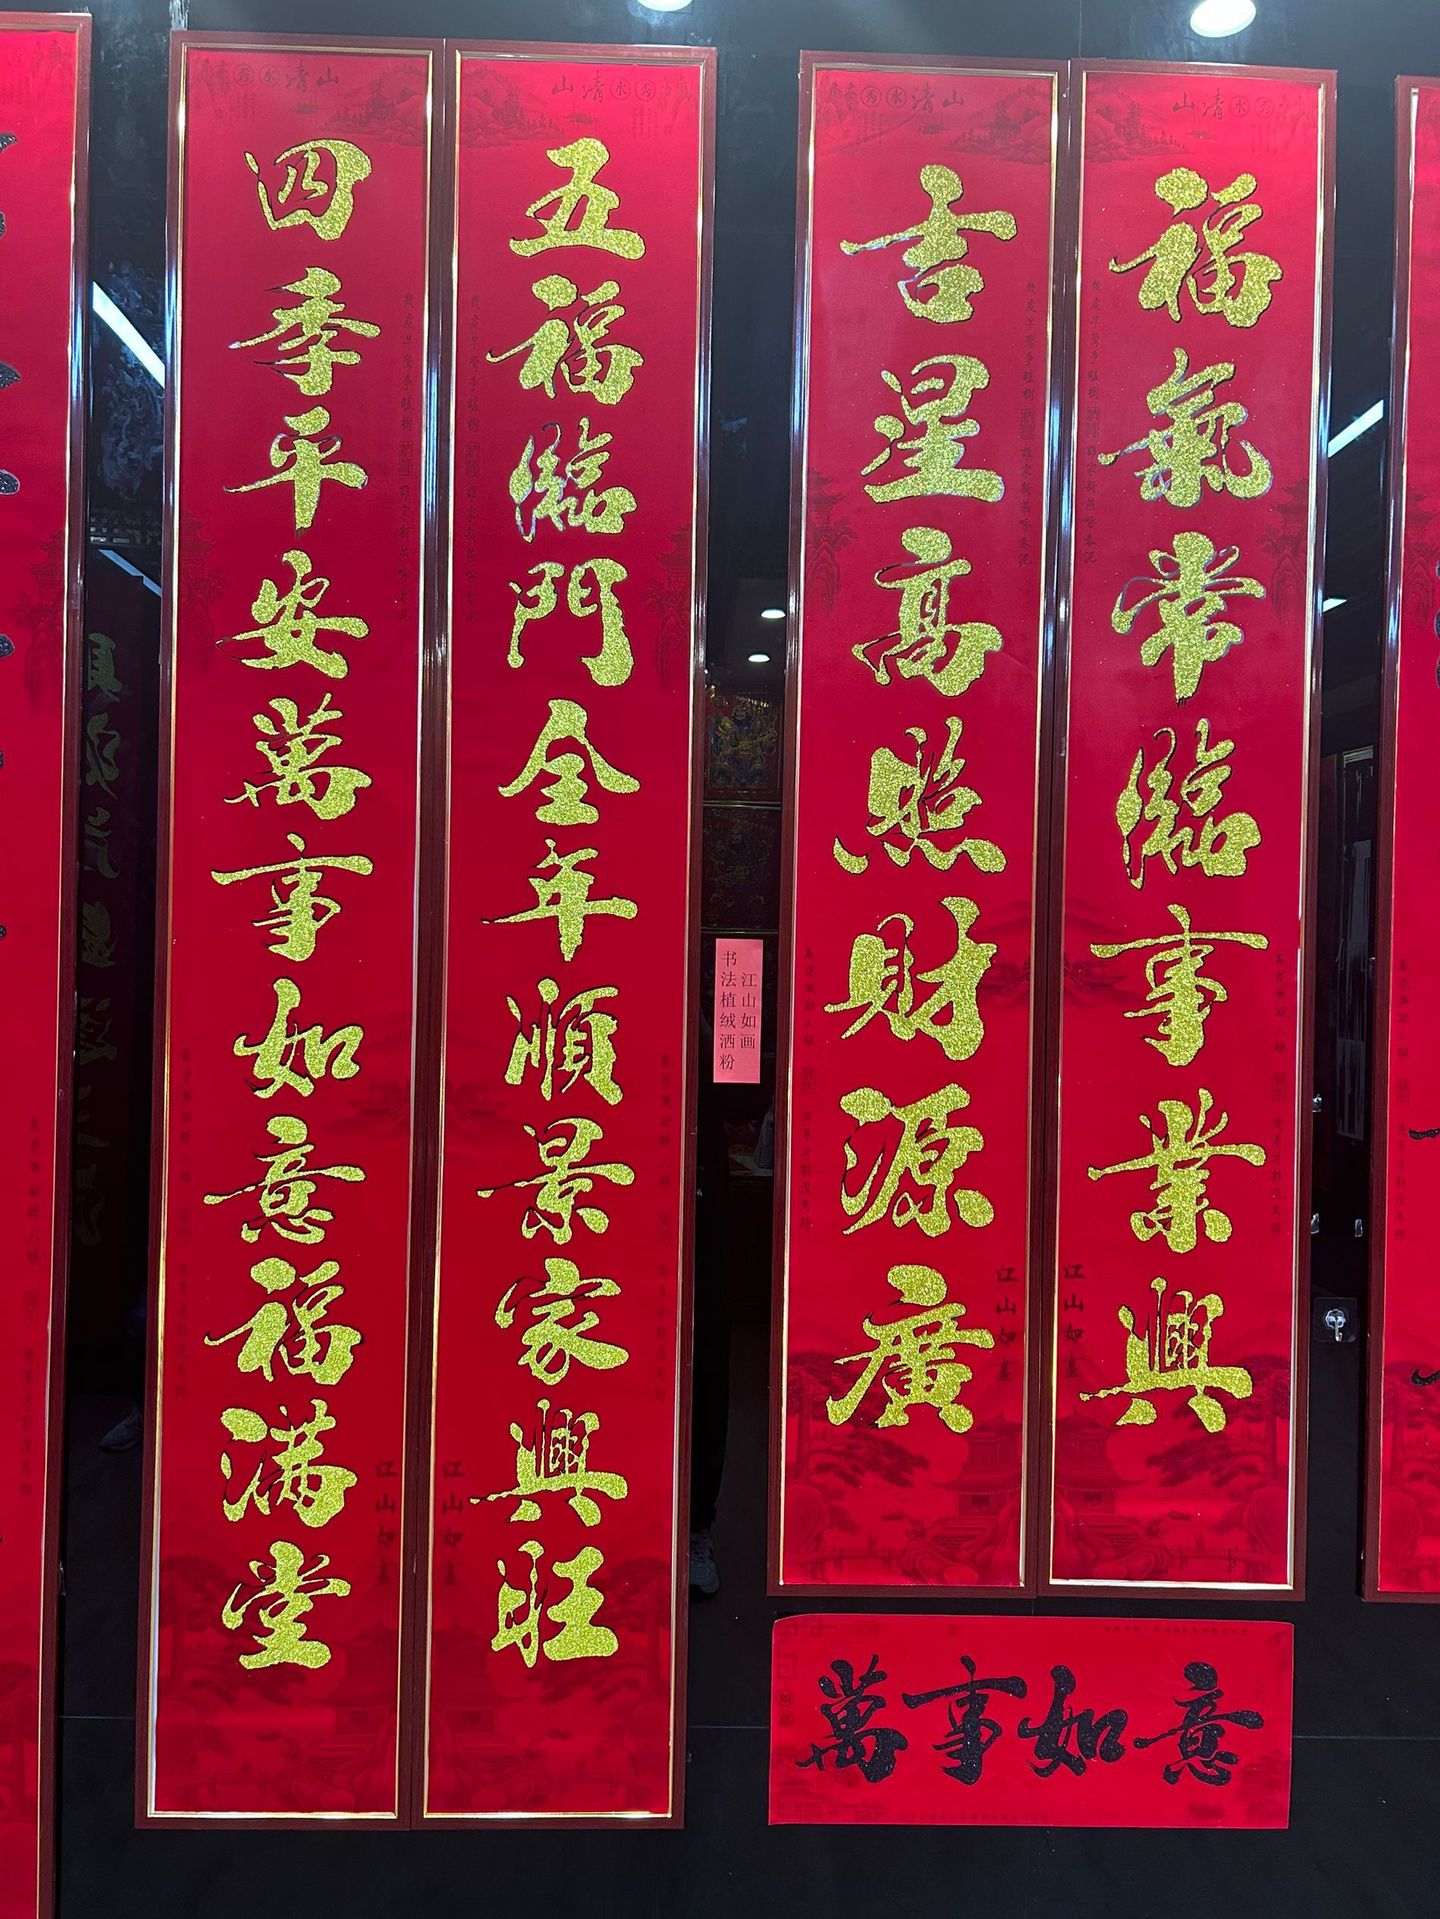 山清水秀
山清水秀
四季平安萬事如意福满堂
五福臨門全年順景家興旺
江山如畫
江山如畫
江山如画
书法植绒洒粉
山清水秀
山清水秀
吉星高照財源廣
福氣常臨事業興
江山如畫
江山如畫
萬事如意